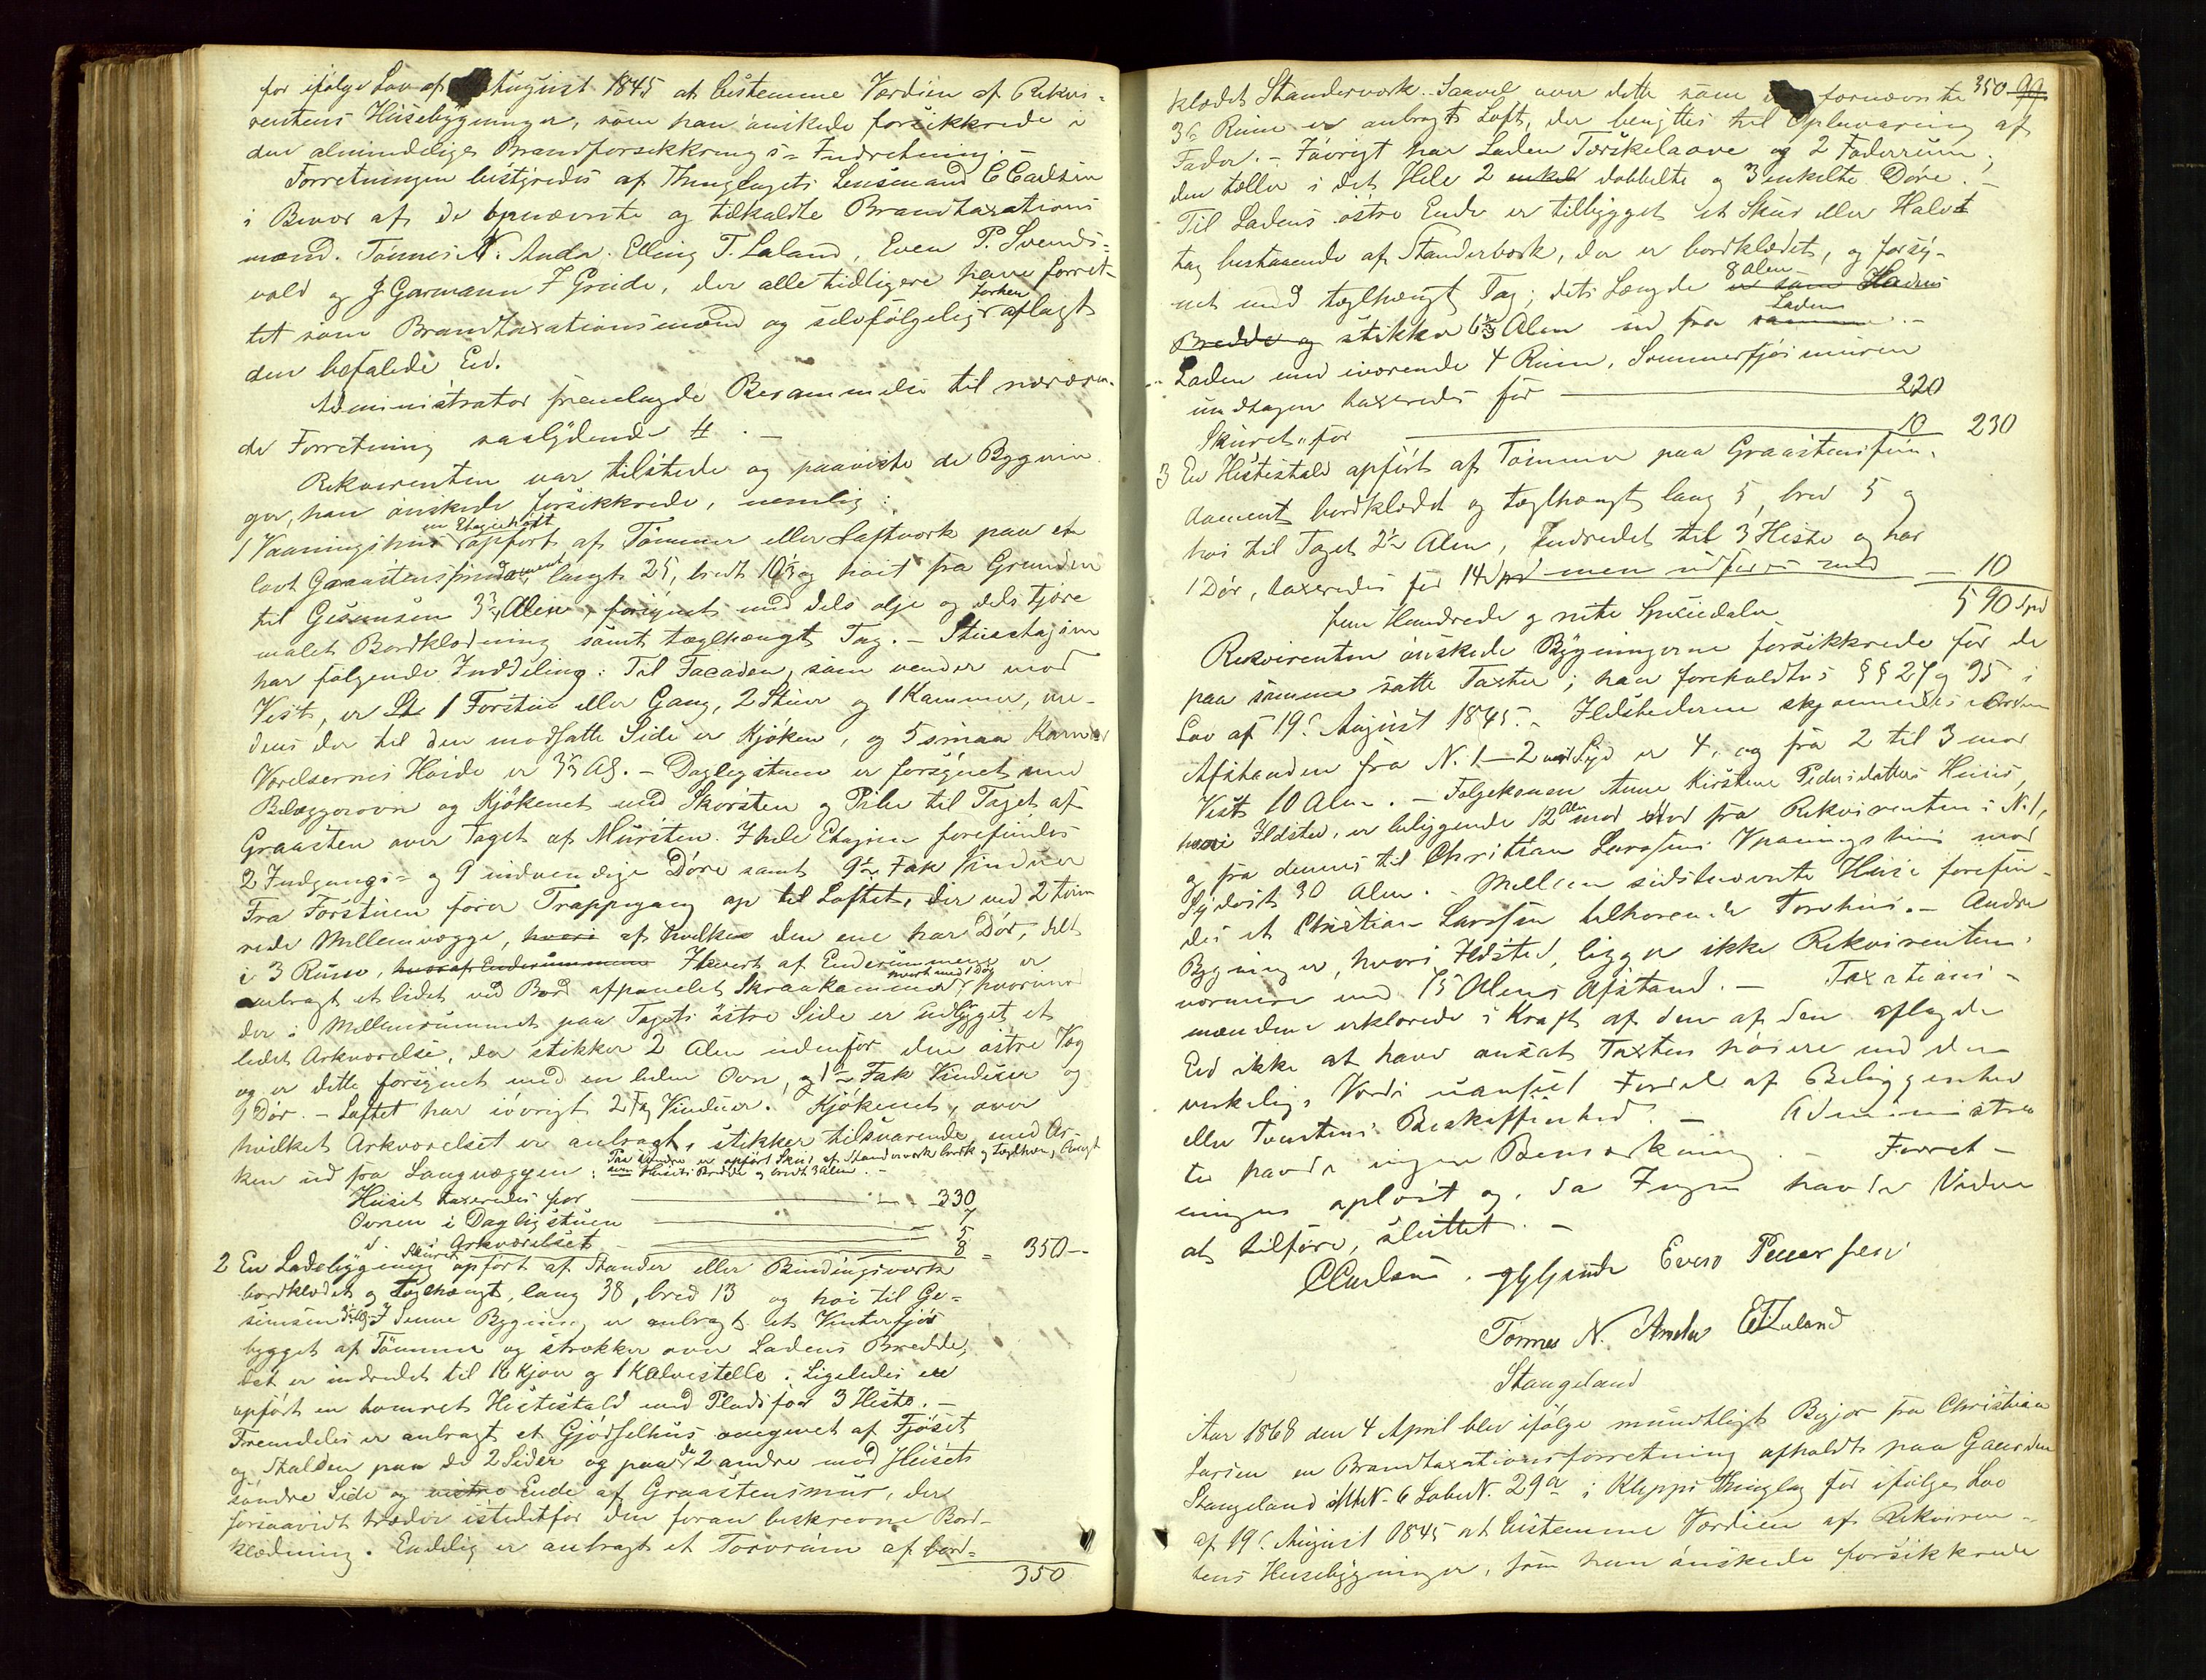 for ifølge Lov af August 1845 at bestemme Værdien af Rekvi-
rentens Husebygninger, som han ønskede forsikkrede i
den almindelige Brandforsikkrings-Indretning. -
Forretningen bestyredes af Thinglagets Lensmand C Carlsen
i Bevær af de opnævnte og tilkaldte Brandtaxations
mænd. Tønnes N. Anda. Elling T. Laland, Even P. Svends-
vold og J Garmann F Grude, der alle tidligere have forret-
tet som Brandtaxationsmænd og selvfølgelig forhen aflagt
den befalede Ed.
Administrator fremlagde Berammelse til nærværen-
de Forretning saalydende #. -
Rekvirenten var tilstede og paaviste de Bygnin
ger, han ønskede forsikkrede, nemlig:
1 Vaaningshus en Etage høit opført af Tømmer eller Laftværk paa et
lavt Graastensfundament, langt 25, bredt 10 1/3 og høit fra Grunden
til Gesimsen 3 3/4 Alen, forsynet med dels olje og dels tjære
malet Bordklædning samt taglhængt Tag. - Stueetagen
har følgende Inddeling: Til Facaden, som vender mod
Vest, er 1 Forstue eller Gang, 2 Stuer og 1 Kammer, me-
dens der til den modsatte Side er Kjøken, og 5 smaa Kamre
Værelsernes Høide er 3 1/3 Al. - Daglegstuen er forsynet med
Bilæggerovn og Kjøkenet med Skorsten og Pibe til Taget af
Graasten over Taget af Mursten. I hele Etagen forefindes
2 Indgangs- og 9 indvendige Døre samt 9 1/2 Fak Vinduer
Fra Forstuen fører Trappegang op til Loftet, der ved 2 tøm
rede Mellemvægge, hvori af hvilke den ene har Dør, delt
i 3 Rum, hver af Enderummene I hvert af Enderummene er
anbragt et lidet ved Bord afpanelet Skraakammer hvert med 1 Dør hvorimod
der i Mellemrummet paa Tagets østre Side er udbygget et
lidet Arkværelse, der stikker 2 Alen udenfor den østre Væg
og er dette forsynet med en liden Ovn, og 1 1/2 Fak Vinduer og
1 Dør. - Loftet har iøvrigt 2 Fag Vinduer. Kjøkenet, over
hvilket Arkværelset er anbragt, stikker tilsvarende med Ar-
ken ud fra Langvæggen: Paa Søndre er opført Skur af Standerværk bordk og taglhæn, langt
som Husets Bredde og bredt 3 Alen. -
Huset taxeredes for - 330
Ovnen i Dagligstuen 7
d. i Arkværelset 5
Skuret 8 = 350 -
2 En Ladebygning opført af Stander eller Bindingsværk
bordklædet og taglhængt, lang 38, bred 13 og høi til Ge-
simsen I denne Bygning er anbragt et Vinterfjøs
bygget af Tømmer og strækker over Ladens Bredde,
det er indredet til 16 Kjør og 1 Kalvestelle. Ligeledes er
opført en tomret Hestestald med Plads for 3 Heste. -
Fremdeles er anbragt et Gjødselhus omgivet af Fjøset
og Stalden paa de 2 Sider og paa de 2 andre mod Husets
søndre Side og Ende af Graastensmur, der
forsaavidt træder istedetfor den foran beskrevne Bord-
klædning. Endelig er anbragt et Torvrum af bord-
350
350 99
klædet Standerværk. Saavel over dette som fornævnte
3 Rum er anbragt Loft, der benyttes til Opbevaring af
Foder. - Iøvrigt har Laden Tærskelaave og 2 Foderrum;
den tæller i det Hele 2 enkel dobbelte og 3 enkelte Døre. -
Til Ladens østre Ende er tilbygget et Skur eller Halvt
tag bestaaende af Standerværk, der er bordklædet, og forsy-
net med taglhængt Tag; dets Længde 8 Alen er som Ladens
Bredde og stikker 6 2/3 Alen ud fra Laden samme. -
Laden med iværende 4 Rum, Sommerfjøsmuren
undtagen taxeredes for 220
Skuret " for 10 230
3 En Hestestald opført af Tømmer paa Graastensfun-
dament bordklædet og taglhængt lang 5, bred 5 og
høi til Taget 2 1/2 Alen, Indredet til 3 Heste og har
1 Dør, taxeredes for 14 Spd men udføres med - 10
fem Hundrede og niti Speciedaler 590 Spd
Rekvirenten ønskede Bygningerne forsikkrede for de
paa samme satte Taxter; han foreholdtes §§ 27 og 35 i
Lov af 19. August 1845. - Ildstederne skjønnedes i Orden
Afstanden fra N. 1 - 2 mod Syd er 4, og fra 2 til 3 mod
Vest 10 Alen. - Folgekonen Anne Kirstine Pedersdatters Huus,
hvori Ildsted, er beliggende 12 Alen mod Nord fra Rekvirenten i N. 1,
og fra dennes til Christian Larssens Vaaningshus mod
Sydost 30 Alen. - Mellem sidstnævnte Huse forefin-
des et Christian Larssen tilhørende Torvhus. - Andre
Bygninger, hvori Ildsted, ligger ikke Rekvirentens
nærmere end 15 Alens Afstand. - Taxations-
mændene erklærede i Kraft af den af dem aflagte
Ed ikke at have ansat Taxten høiere end den
virkelige Værdi uanseet Fordel af Beliggenhed
eller Tomtens Beskaffenhed. - Administra
to havde ingen Bemærkning. - Forret-
ningen oplæst og, da Ingen havde Videre
at tilføre, sluttet. -
CCarlsen. Even Pedersen
Tønnes N. Anda ETLaland
Stangeland
Aar 1868 den 4 April blev ifølge mundtligt Begjær fra Christian
Larsen en Brandtaxationsforretning afholdt paa Gaarden
Stangeland MtN. 6 LøbeN. 29a i Klepps Thinglag for ifølge Lov
af 19. August 1845 at bestemme Værdien af Rekviren-
tens Husebygninger, som han ønskede forsikkrede